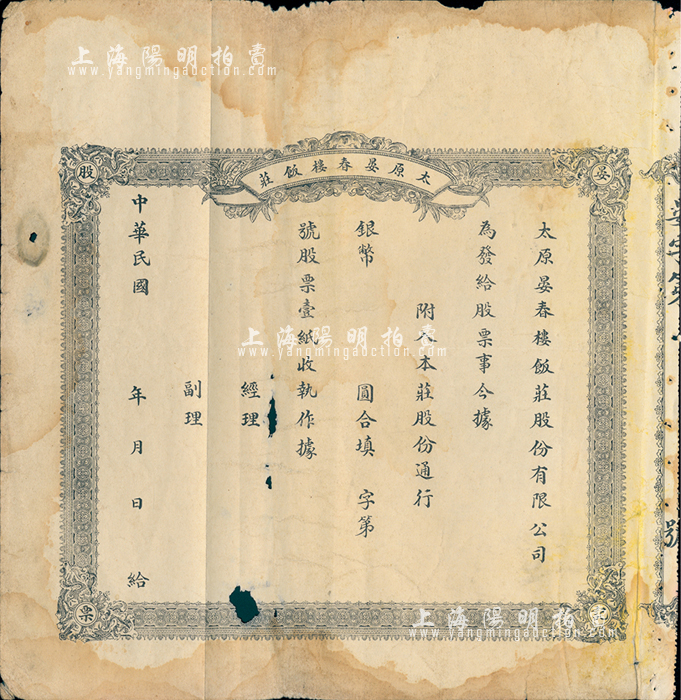 上海陽明拍賣
www.yangmingauction.com
太原晏春樓飯莊
晏
股
票
太原晏春樓飯莊股份有限公司
為發給股票事今據
附入本莊股份通行
銀幣 圓合填 字第
號股票壹紙收執作據
經理
副理
中華民國 年 月 日 給
號
上海陽明拍賣
www.yangmingauction.com
上海陽明拍賣
www.yangmingauction.com